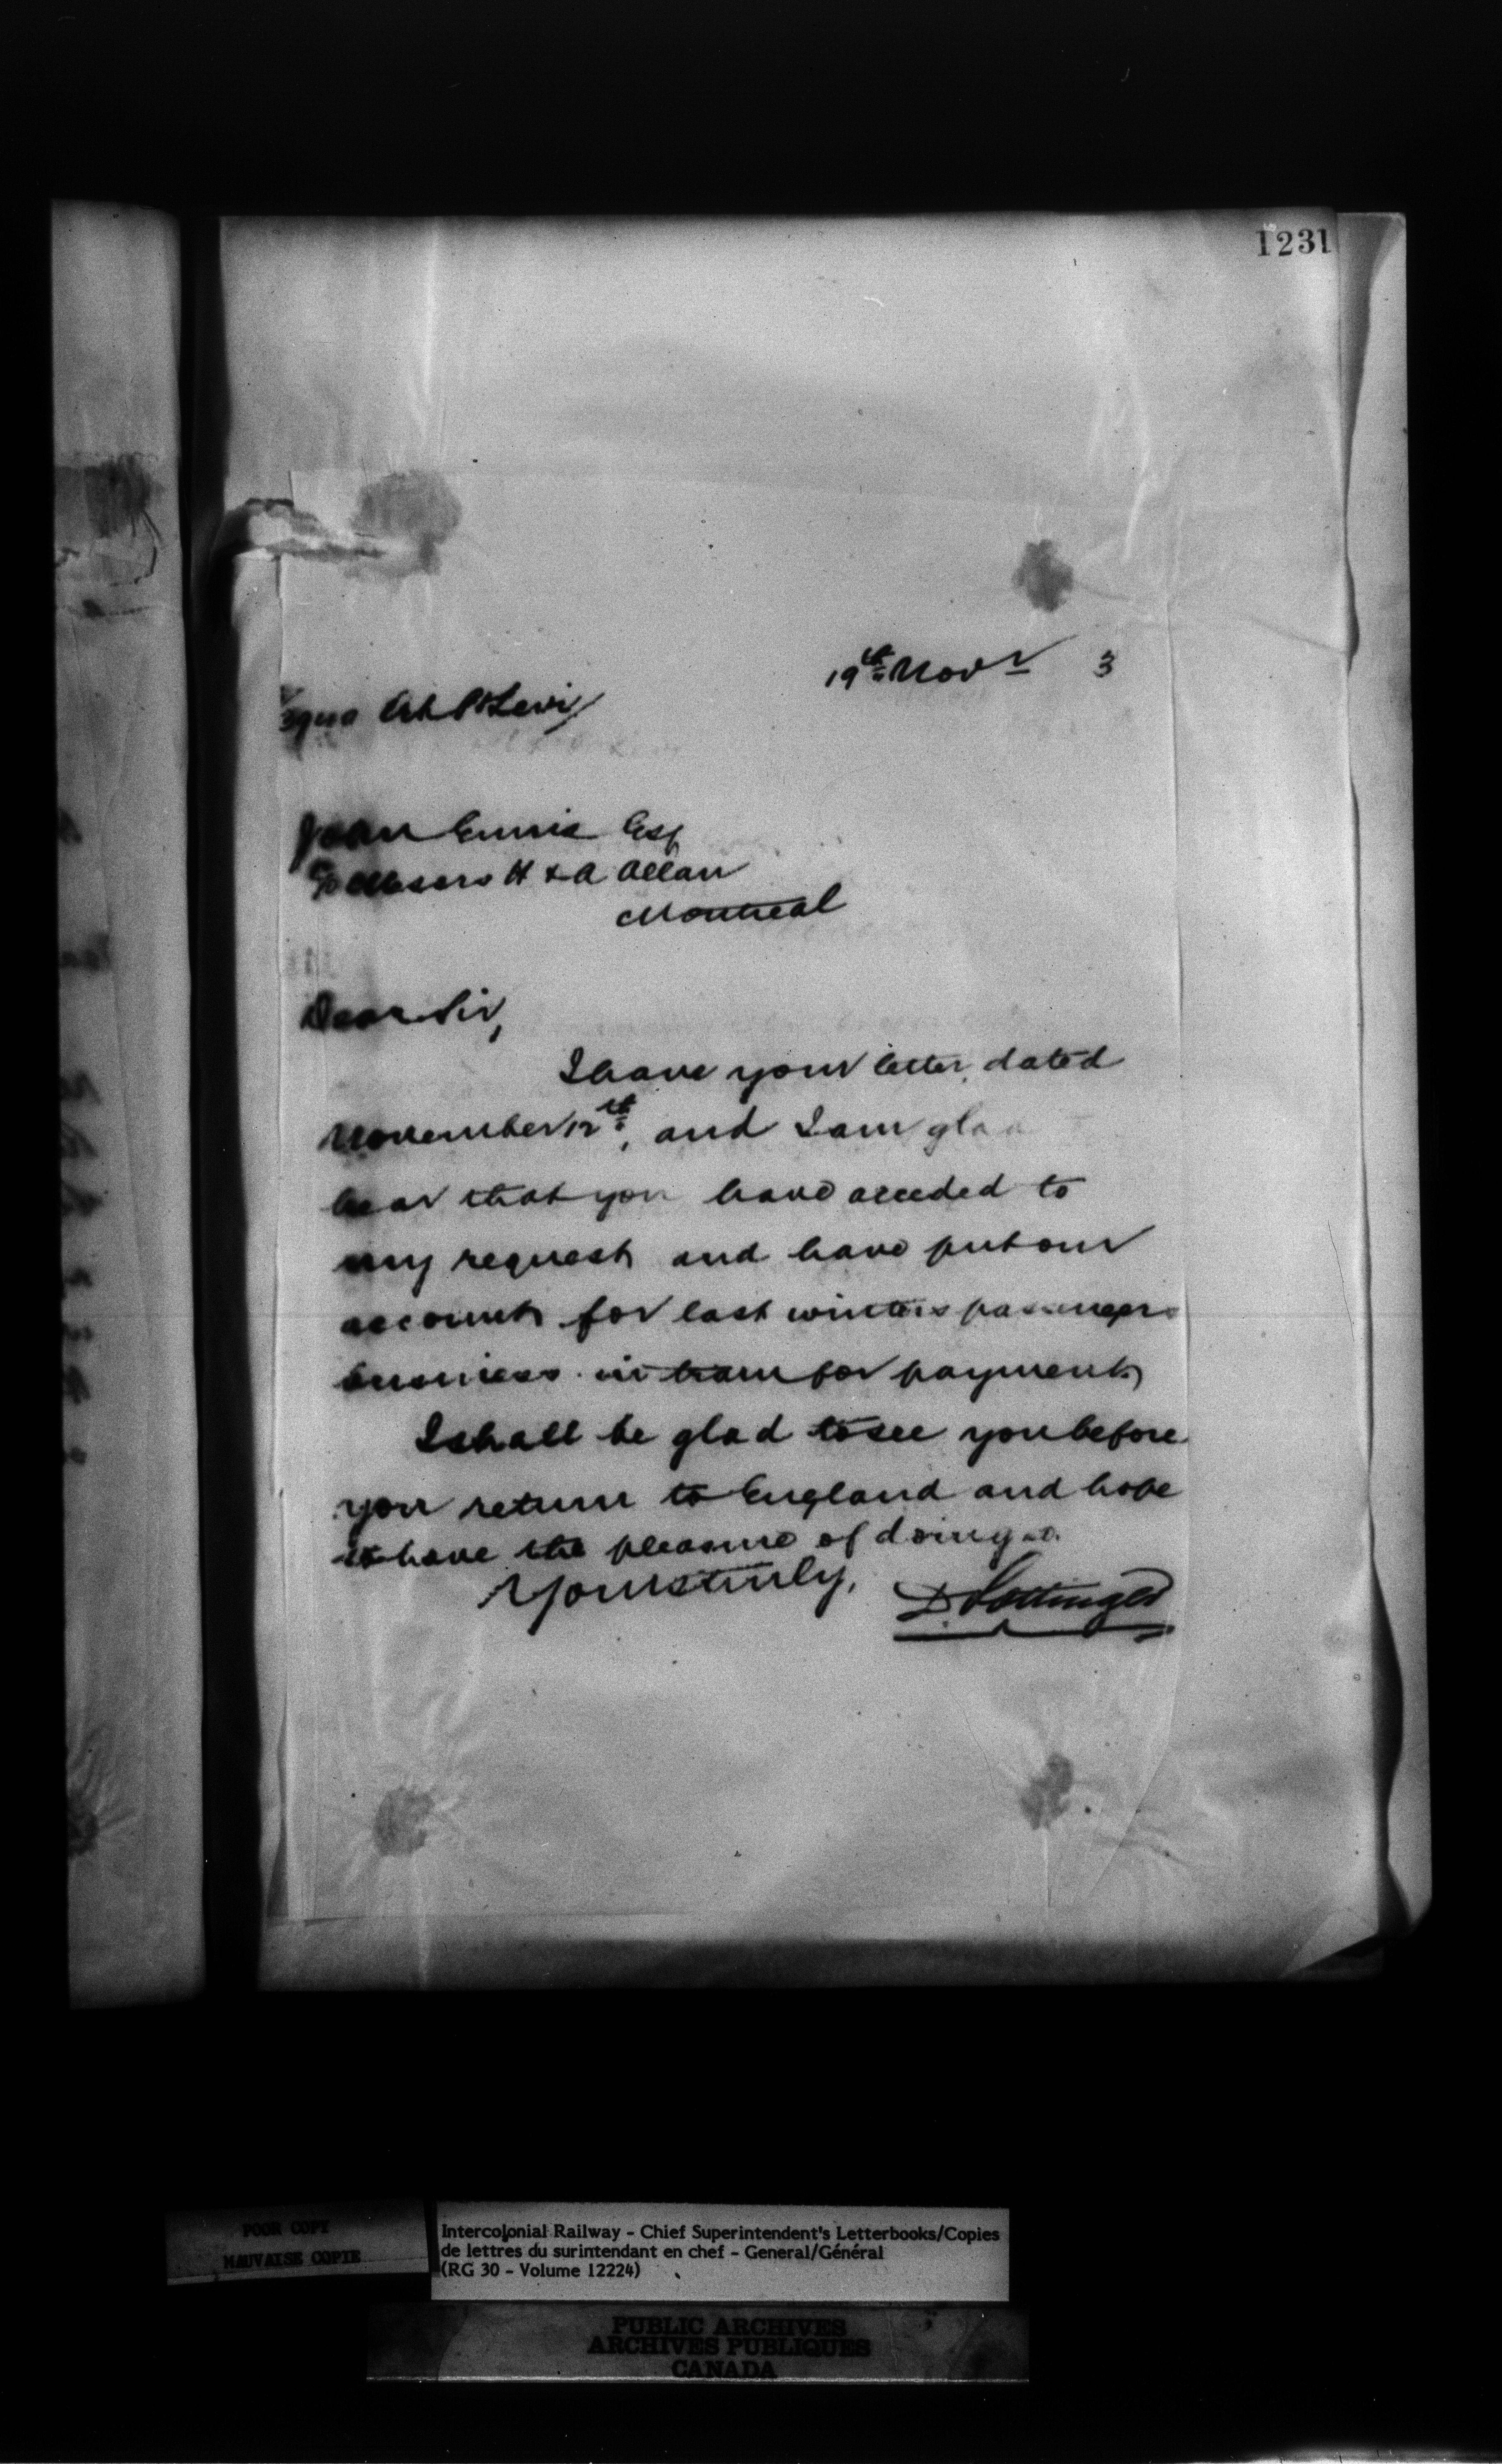 1231
19th Novr 3
John Ennis Esq
c/o Messrs H & A Allan
Montreal
Dear Sir,
I have your letter dated
November 12th, and I am gla
hear that you have acceded to
my request and have put our
accounts for last winters passenger
business in train for payment
I shall be glad to see you before
you return to England and hope
to have the pleasure of doing so.
Yours truly, D Pottinger
POOR COPY
MAUVAISE COPIE
Intercolonial Railway - Chief Superintendent's Letterbooks/Copies
de lettres du surintendant en chef - General/Général
(RG 30 - Volume 12224)
PUBLIC ARCHIVES
ARCHIVES PUBLIQUES
CANADA